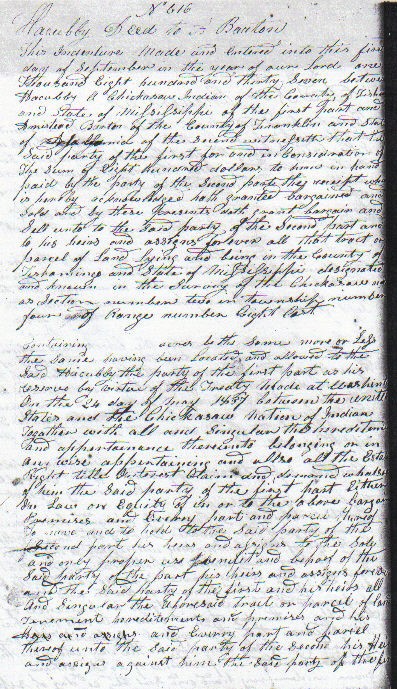 No 616
Hacubby Deed to Barton
This Indenture Made and Entered into this first
day of September in the year of our Lord one
Thousand Eight hundred and thirty Seven betwe
Hacubby A Chickasaw Indian of the County of Tisho
and State of Mississippi of the first part and
Barton of the County of Franklin and State
of and of the Second witnesseth that the
Said party of the first for and in Consideration of
The Sum of Eight hundred dollars to him in hand
paid by the party of the Second part the receipt whe
is hereby acknowledged hath granted bargained and
Sold and by these presents doth grant bargain and
Sell unto to the Said party of the Second part and
to his heirs and assigns forever all that tract or
parcel of Land lying and being in the County of
Tishomingo and State of Mississippi designated
and known in the Survey of the Chickasaw
as Section number two in township number
four of Range number Eight East
Containing acres be the same more or less
the Same having been located and allowed to the
Said Hacubby the party of the first part as his
reserve by virtue of the Treaty Made at Washin
On the 24 day of May between the Unite
States and the Chickasaw Nation of Indian
Together with all and Singular the hereditam
and appertainance thereunto belonging or in
any wise appertaining and also all the Estat
Right title Interest Claim and demand whatso
of him the Said party of the first part Either
In Law or Equity of in or to the above bargan
Premises and Every part and parcel there
To have and to hold to the Said party of the
Second part his heirs and assigns to the Sole
and only proper use benefit and behoof of the
Said party of the part his heirs and assigns forever
and the Said party of the first and his heirs all
and Singular the aforesaid tract or parcel of land
Tenement hereditements and premises and his
heirs and assigns and Every part and parcel
thereof unto the Said party of the Second his Heirs
and assigns against him the Said party of the fir